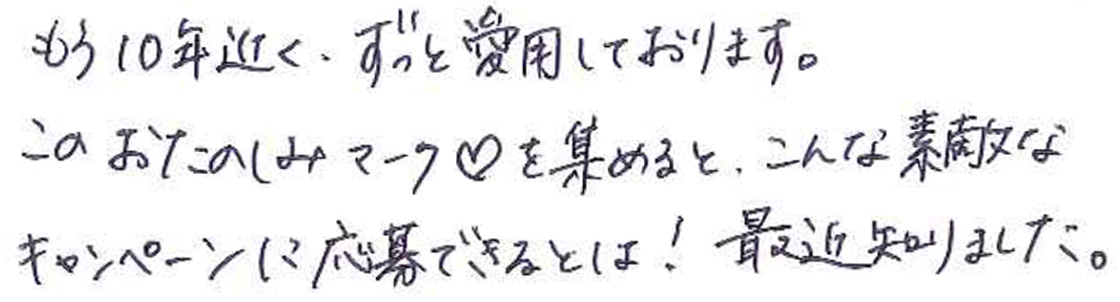 もう10年近く、ずっと愛用しております。
このおたのしみマーク♡を集めると、こんな素敵な
キャンペーンに応募できるとは！最近知りました。